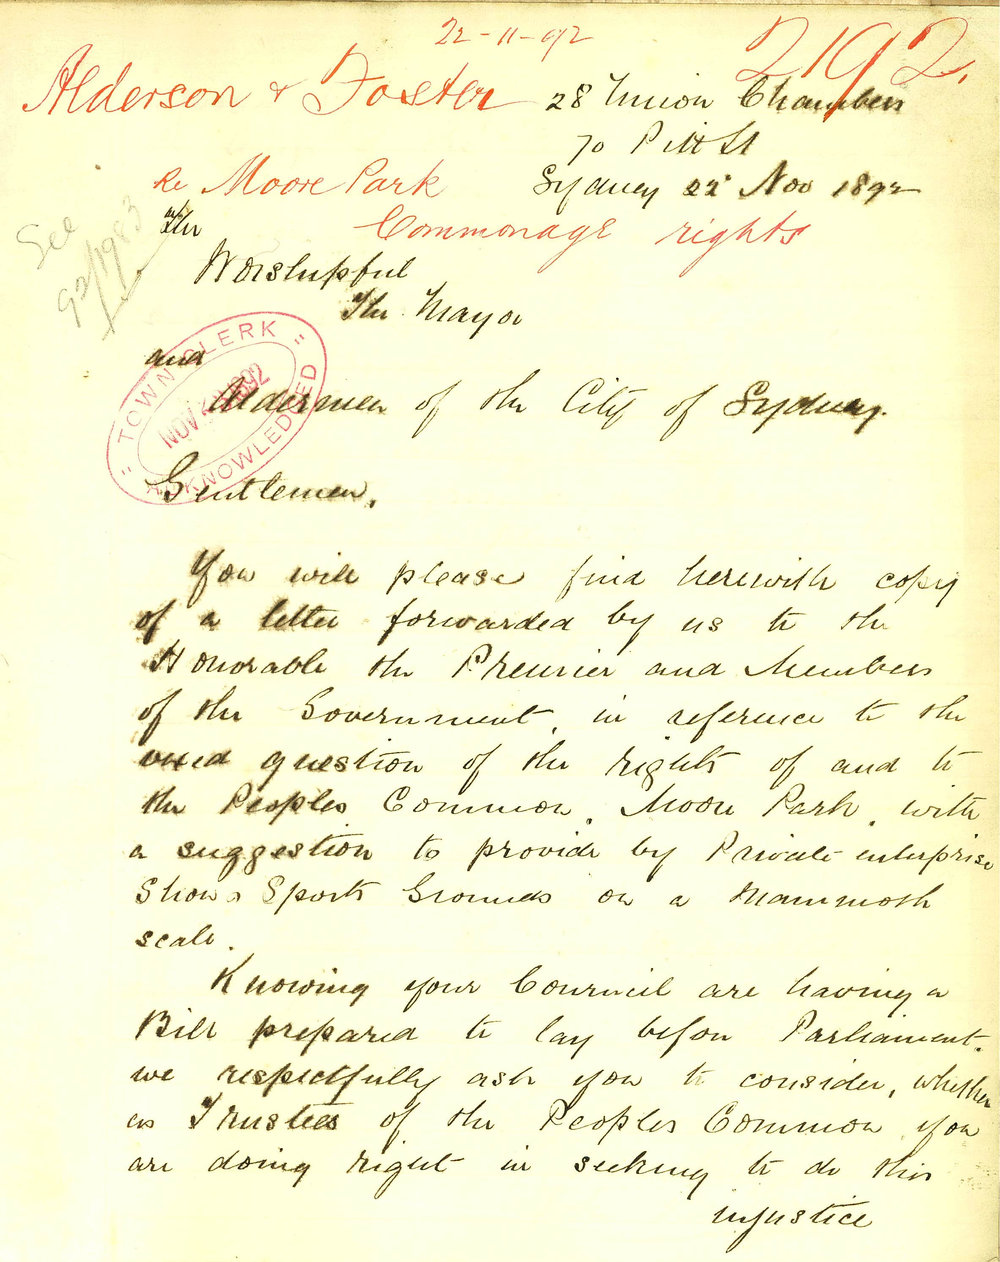 22-11-92
2192.
Alderson & Foster
28 Union Chambers
70 Pitt St
Re Moore Park
Sydney 22 Nov 1892
Commonage rights
See
92/1983
To The
Worshipful
The Mayor
and
Aldermen of the City of Sydney.
TOWN CLERK
NOV 1892
ACKNOWLEDGED
Gentlemen,
You will please find herewith copy
of a letter forwarded by us to the
Honorable the Premier and Members
of the Government, in reference to the
vexed question of the rights of and to
the Peoples Common, Moore Park, with
a suggestion to provide by Private enterprise
Show & Sports Grounds on a Mammoth
scale.
Knowing your Council are having a
Bill prepared to lay before Parliament.
we respectfully ask you to consider, whether
as Trustees of the Peoples Common you
are doing right in seeking to do this
injustice